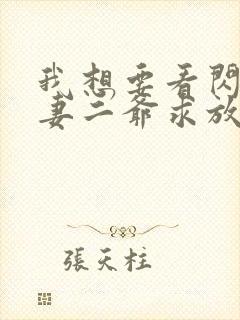 我想要看閃
妻二爺求放
張天柱